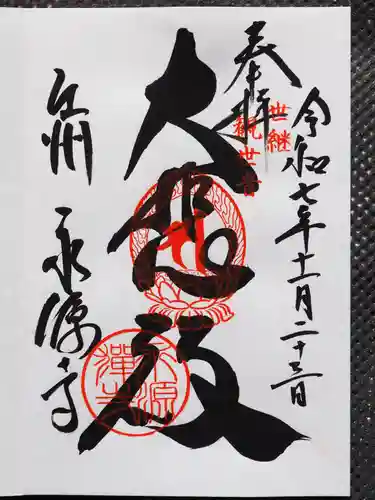 奉拝
令和七年十一月二十三日
世継
観世音
大悲殿
江州
永源寺
永源
禅寺